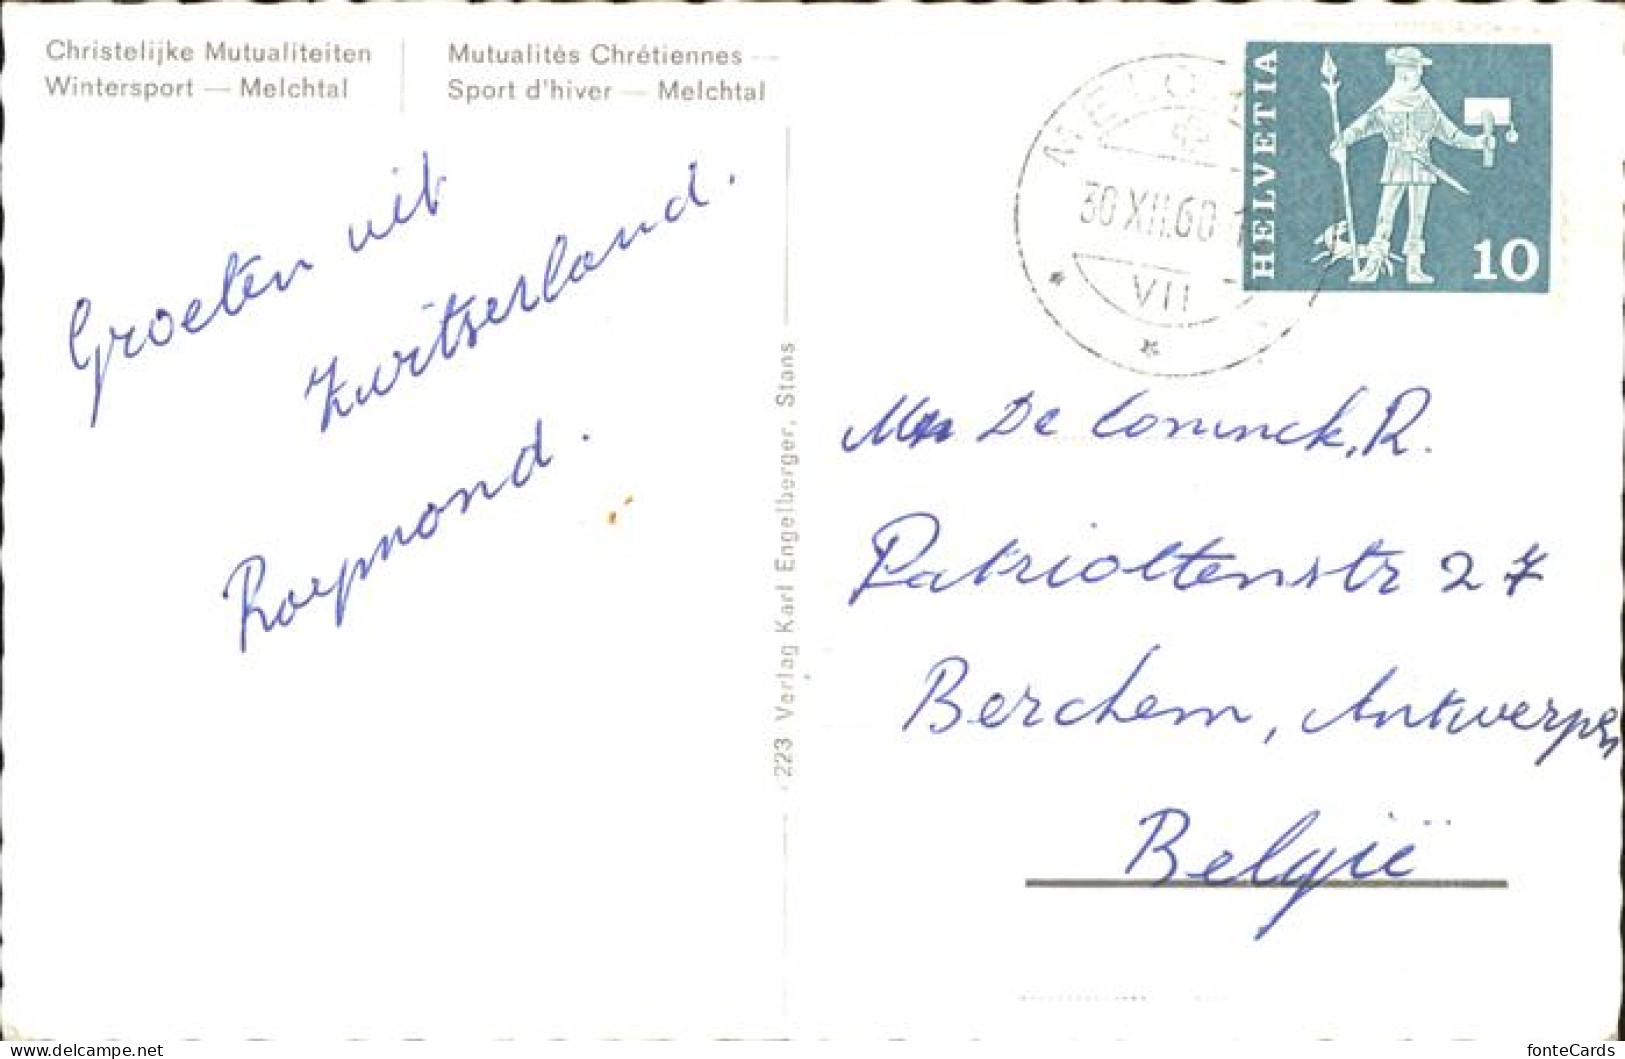 Christelijke Mutualiteiten
Wintersport — Melchtal
Mutualités Chrétiennes —
Sport d'hiver — Melchtal
Groeten uit
Zwitserland.
Raymond.
223 Verlag Karl Engelberger, Stans
30 XII.60
VII
HELVETIA
10
De Coninck, R.
Patriottenstr 27
Berchem, Antwerpen
België
fonteCards